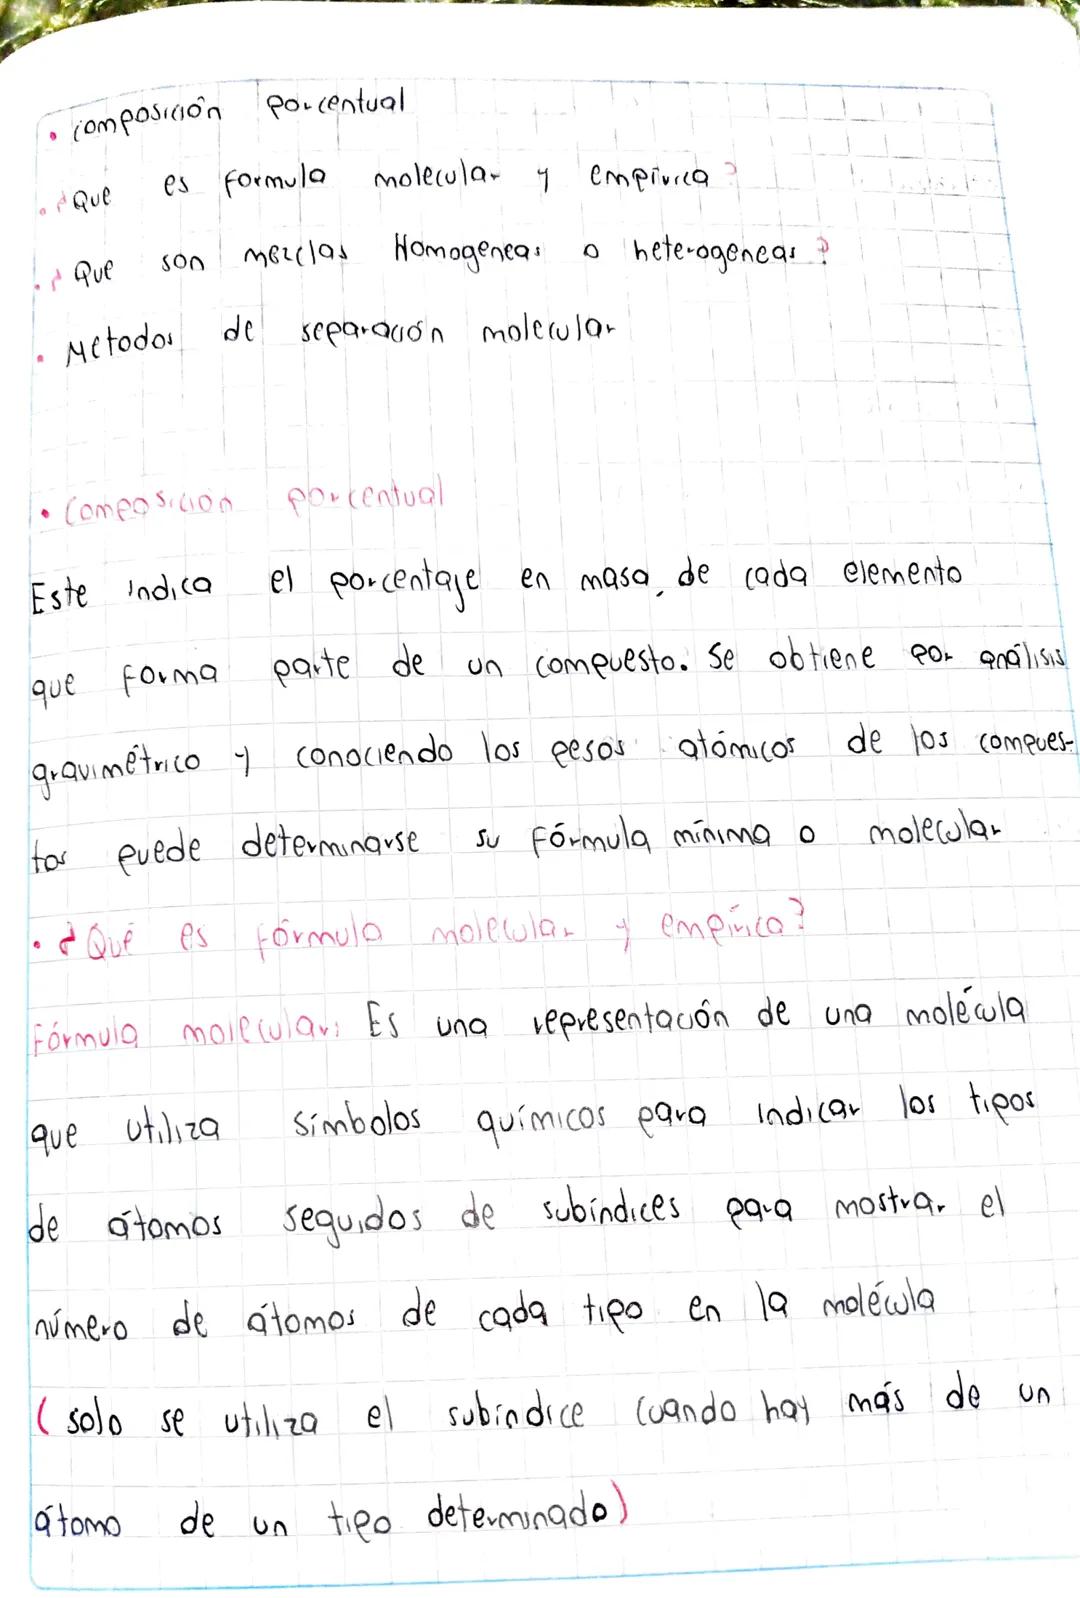 • composición porcentual
• ¿Que es formula molecular y empírica?
• ¿Que son mezclas Homogeneas o heterogeneas?
• Metodos de separación molecular
• Composición porcentual
Este indica el porcentaje en masa, de cada elemento
que forma parte de un compuesto. Se obtiene por análisis
gravimétrico y conociendo los pesos atómicos de los compues-
tos puede determinarse su fórmula mínima o molecular
• ¿Qué es fórmula molecular y empírica?
Fórmula molecular: Es una representación de una molécula
que utiliza símbolos químicos para indicar los tipos
de átomos seguidos de subíndices para mostrar el
número de átomos de cada tipo en la molécula
(solo se utiliza el subíndice cuando hay más de un
átomo de un tipo determinado)